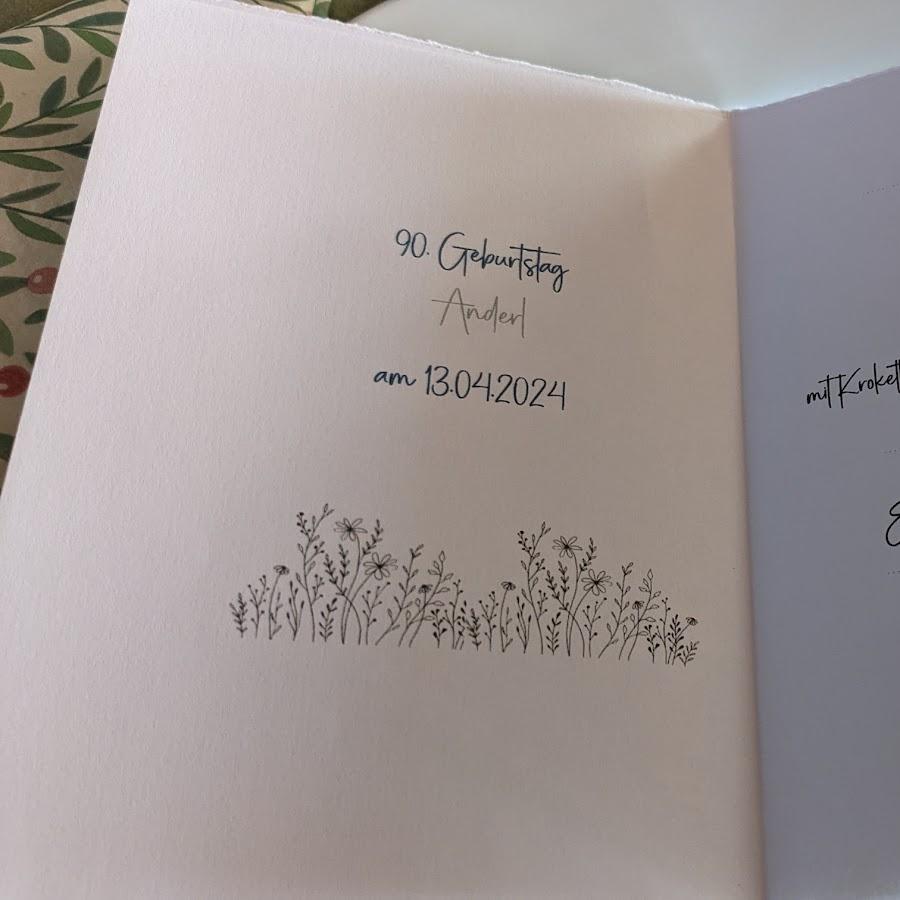 90. Geburtstag
Anderl
am 13.04.2024
mit